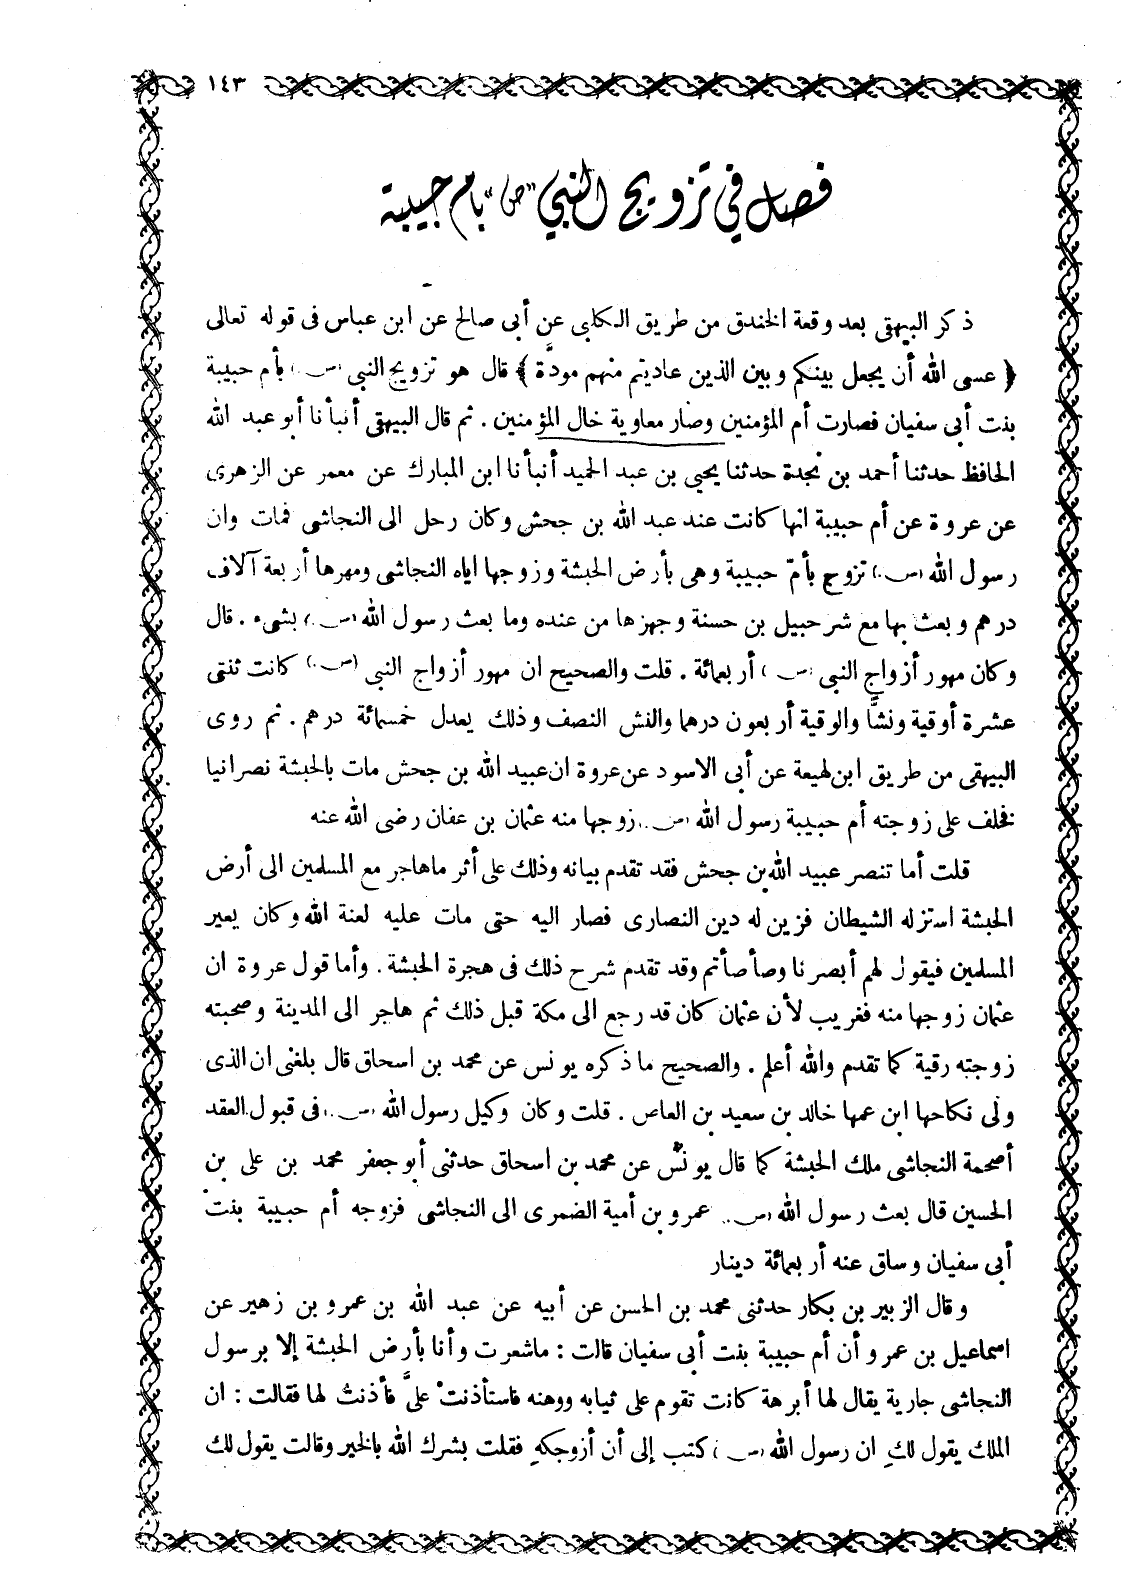 ١٤٣
فصل في تزويج النبي "ص" بام حبيبة
ذكر البيهقى بعد وقعة الخندق من طريق الكلبى عن أبى صالح عن ابن عباس فى قوله تعالى
﴿ عسى الله أن يجعل بينكم وبين الذين عاديتم منهم مودَّة ﴾ قال هو تزويج النبى (ص) بأم حبيبة
بنت أبى سفيان فصارت أم المؤمنين وصار معاوية خال المؤمنين . ثم قال البيهقى أنبأنا أبو عبد الله
الحافظ حدثنا أحمد بن نجدة حدثنا يحيى بن عبد الحميد أنبأنا ابن المبارك عن معمر عن الزهرى
عن عروة عن أم حبيبة انها كانت عند عبد الله بن جحش وكان رحل الى النجاشى فمات وان
رسول الله (ص) تزوج بأمّ حبيبة وهى بأرض الحبشة وزوجها اياه النجاشى ومهرها أربعة آلاف
درهم وبعث بها مع شرحبيل بن حسنة وجهزها من عنده وما بعث رسول الله (ص) بشىء . قال
وكان مهور أزواج النبى (ص) أربعمائة . قلت والصحيح ان مهور أزواج النبى (ص) كانت ثنتى
عشرة أوقية ونشَّا والوقية أربعون درهما والنش النصف وذلك يعدل خمسمائة درهم . ثم روى
البيهقى من طريق ابن لهيعة عن أبى الاسود عن عروة ان عبيد الله بن جحش مات بالحبشة نصرانيا
فخلف على زوجته أم حبيبة رسول الله (ص) زوجها منه عثمان بن عفان رضى الله عنه
قلت أما تنصر عبيد الله بن جحش فقد تقدم بيانه وذلك على أثر ماهاجر مع المسلمين الى أرض
الحبشة استزله الشيطان فزين له دين النصارى فصار اليه حتى مات عليه لعنة الله وكان يعير
المسلمين فيقول لهم أبصرنا وصأصأتم وقد تقدم شرح ذلك فى هجرة الحبشة . وأما قول عروة ان
عثمان زوجها منه فغريب لأن عثمان كان قد رجع الى مكة قبل ذلك ثم هاجر الى المدينة وصحبته
زوجته رقية كما تقدم والله أعلم . والصحيح ماذكره يونس عن محمد بن اسحاق قال بلغنى ان الذى
ولى نكاحها ابن عمها خالد بن سعيد بن العاص . قلت وكان وكيل رسول الله (ص) فى قبول العقد
أصحمة النجاشى ملك الحبشة كما قال يونس عن محمد بن اسحاق حدثنى أبو جعفر محمد بن على بن
الحسين قال بعث رسول الله (ص) عمرو بن أمية الضمرى الى النجاشى فزوجه أم حبيبة بنت
أبى سفيان وساق عنه أربعمائة دينار
وقال الزبير بن بكار حدثنى محمد بن الحسن عن أبيه عن عبد الله بن عمرو بن زهير عن
اسماعيل بن عمرو أن أم حبيبة بنت أبى سفيان قالت : ماشعرت وأنا بأرض الحبشة إلا برسول
النجاشى جارية يقال لها أبرهة كانت تقوم على ثيابه ودهنه فاستأذنتْ علىَّ فأذنتُ لها فقالت : ان
الملك يقول لكِ ان رسول الله (ص) كتب إلى أن أزوجكهِ فقلت بشرك الله بالخير وقالت يقول لك